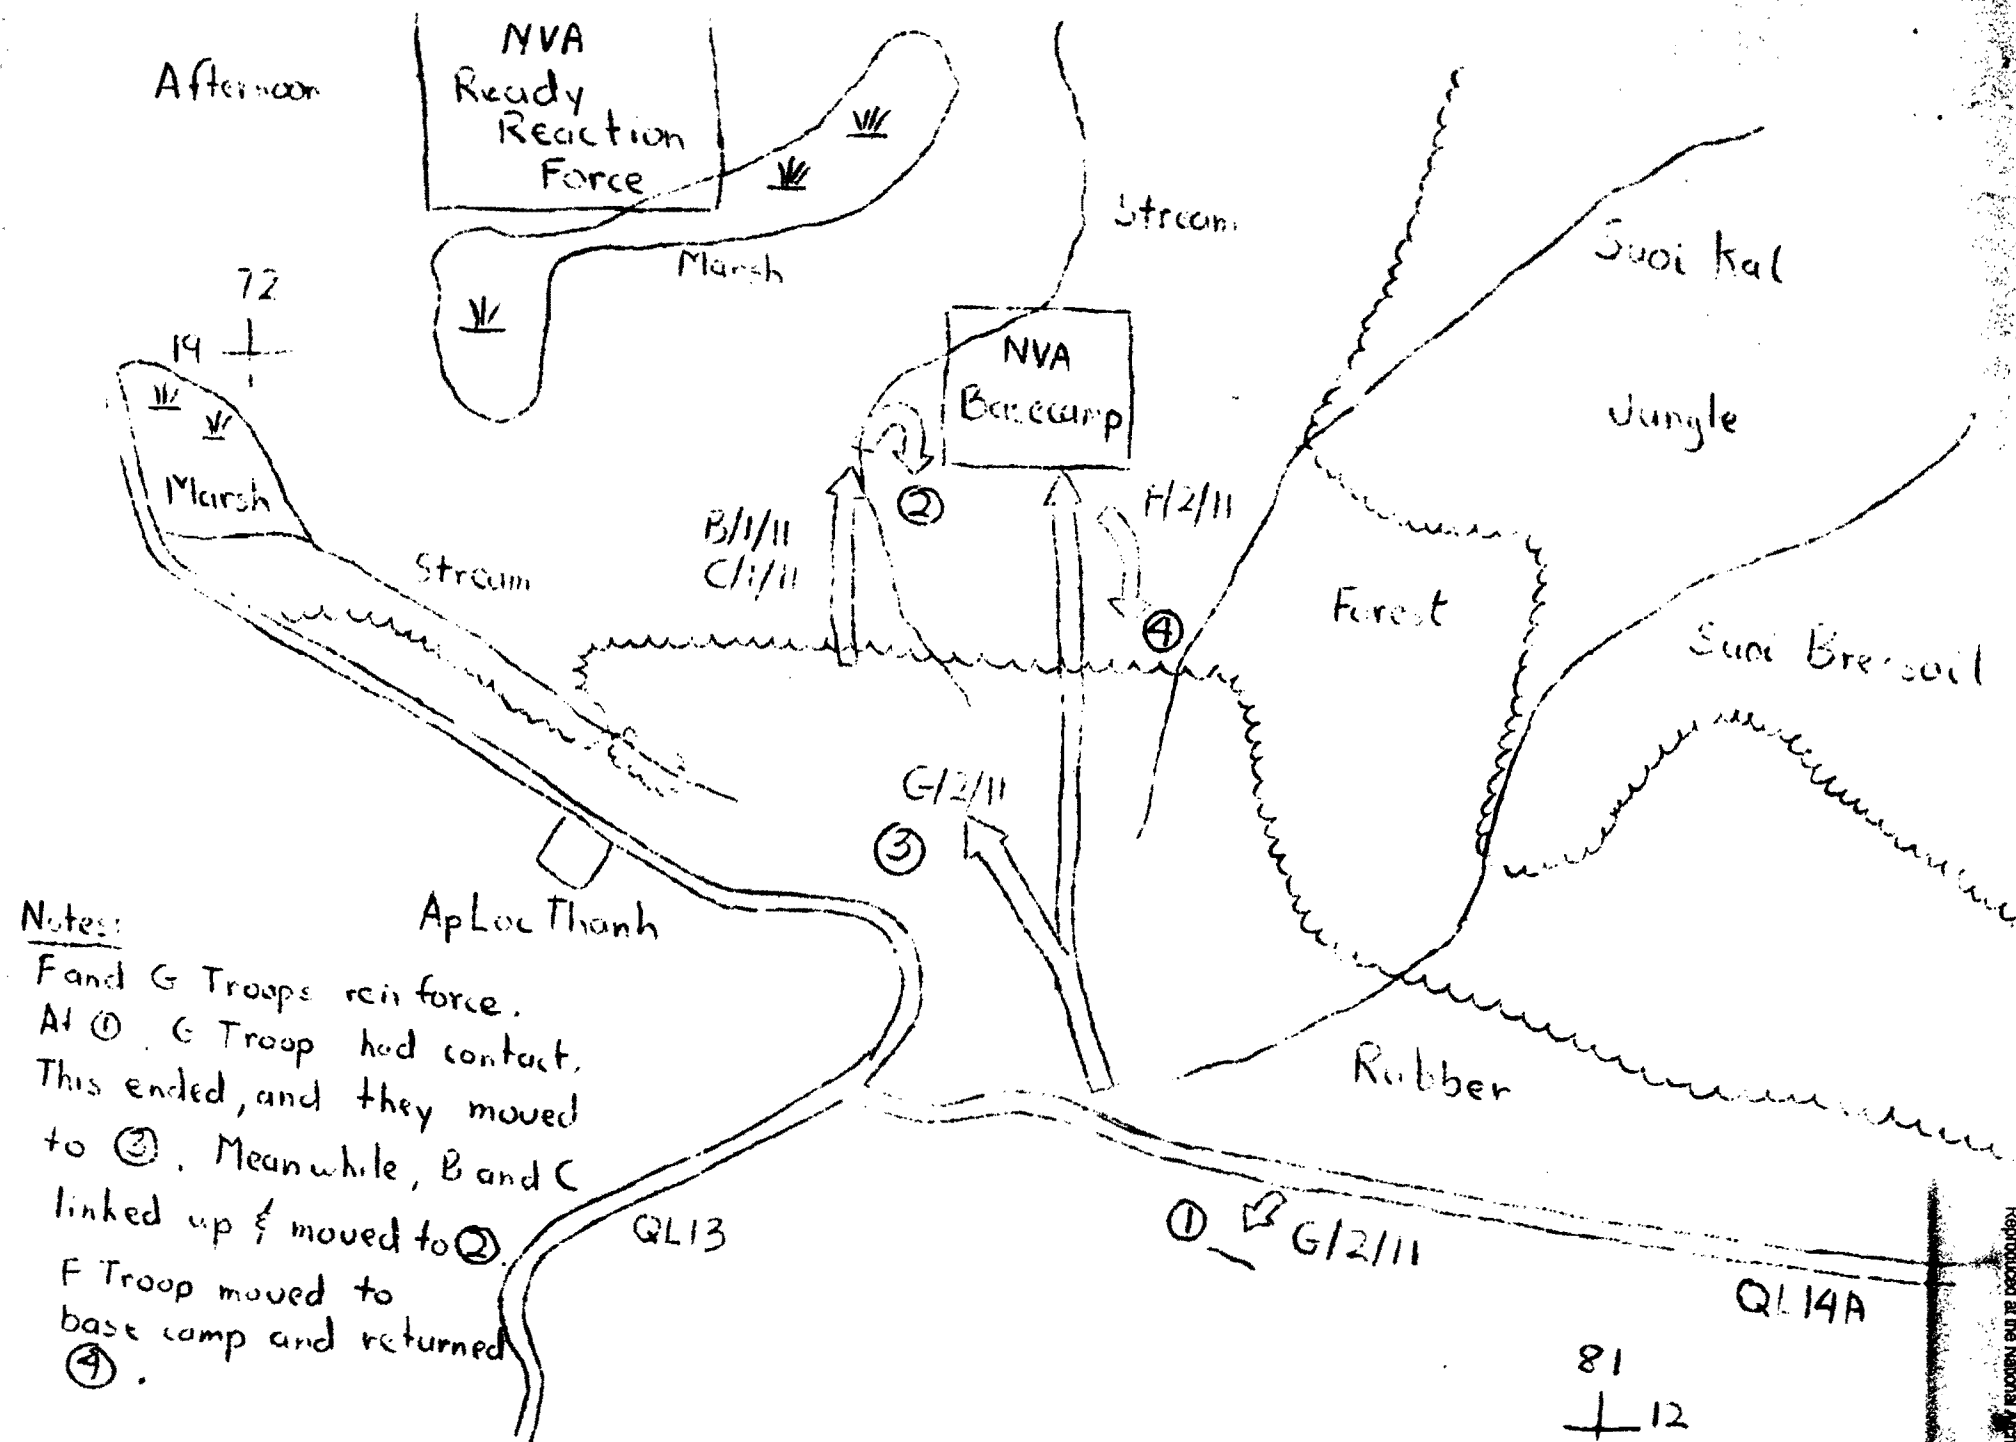 Afternoon
NVA
Ready
Reaction
Force
Marsh
Stream
Suoi Kal
72
19
NVA
Basecamp
Jungle
Marsh
②
F/2/11
B/1/11
C/1/11
Stream
Forest
④
Suoi
G/2/11
③
Ap Loc Thanh
Rubber
Notes:
F and G Troops reinforce.
At ①. G Troop had contact.
This ended, and they moved
to ③. Meanwhile, B and C
linked up & moved to ②.
F Troop moved to
base camp and returned
④.
QL13
①
G/2/11
QL14A
81
12
Reproduced at the National